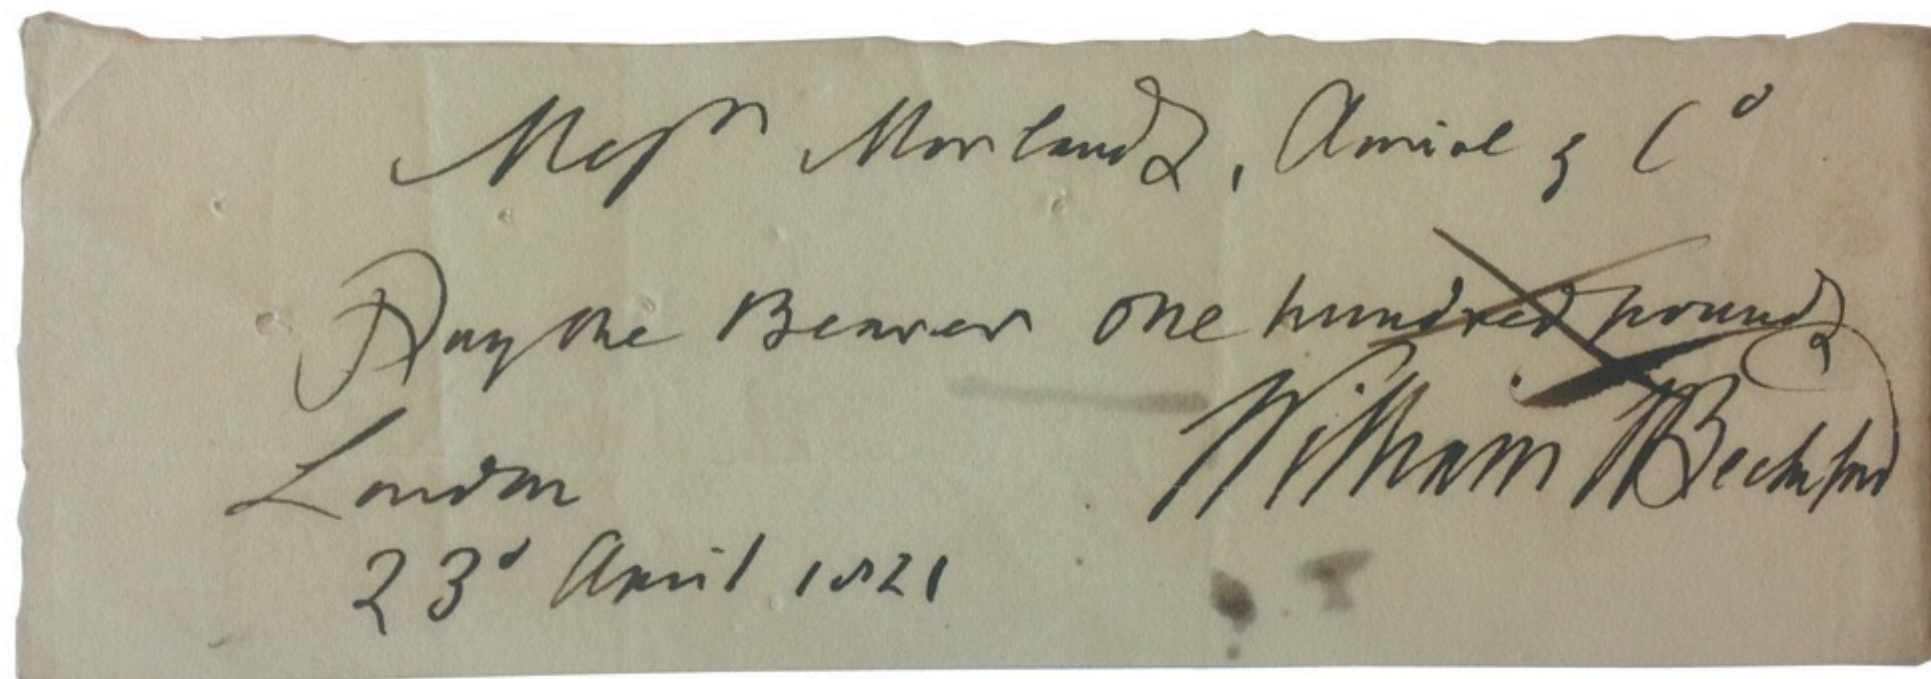 Messrs Morland, Auriol & Co
Pay the Bearer One hundred pounds
William Beckford
London
23d April 1821